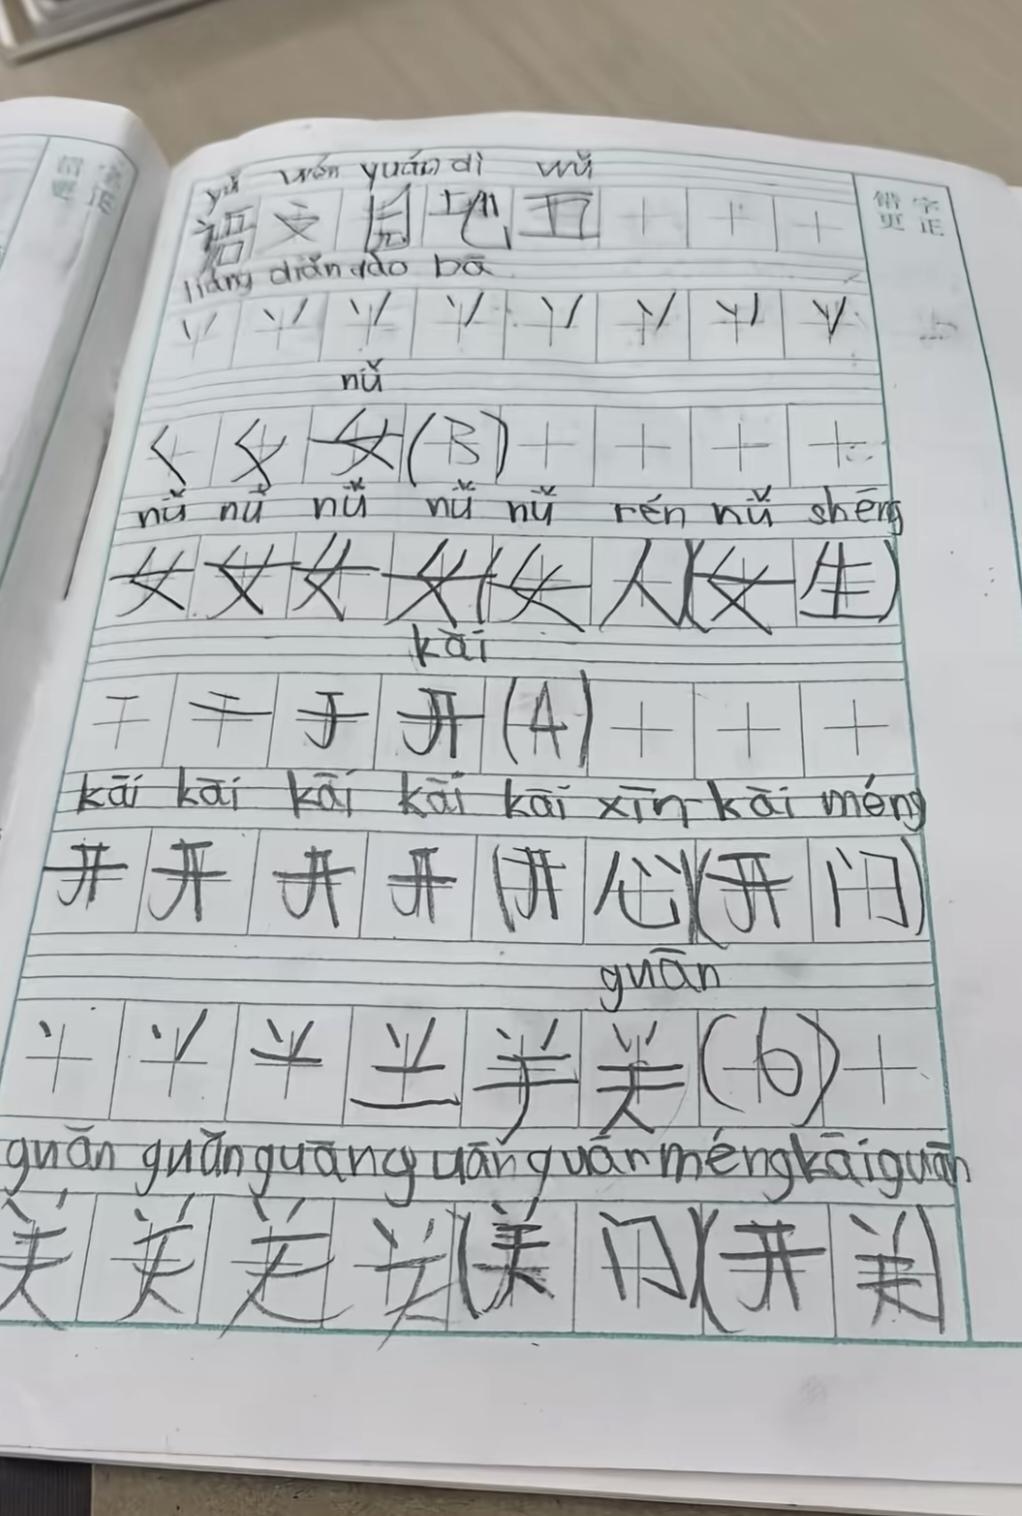 yǔ wén yuán dì wǔ
语文园地五
liǎng diǎn dào bā
丷 丷 丷 丷 丷 丷 丷 丷
nǚ
ㄑ 女 (3)
nǚ nǚ nǚ nǚ nǚ rén nǚ shēng
女 女 女 女 (女 人)(女 生)
kāi
一 二 于 开 (4)
kāi kāi kāi kāi kāi xīn kāi mén
开 开 开 开 (开 心)(开 门)
guān
丶 丷 关 (6)
guān guān guān guān guān mén kāi guān
关 关 关 关 (关 门)(开 关)
错字更正